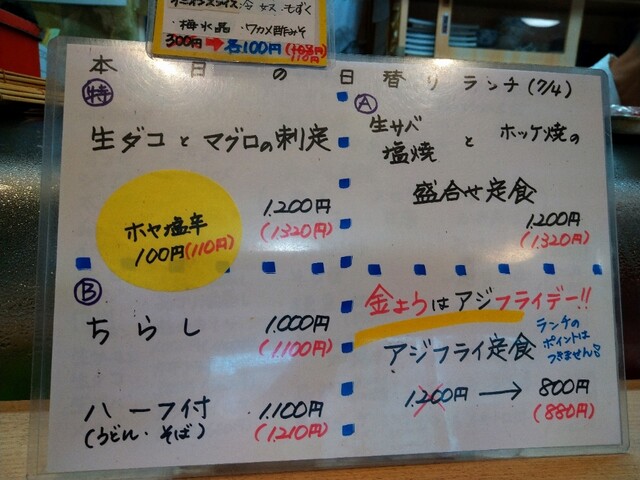 オニオンスライス 冷奴 もずく
・梅水晶 ・ワカメ酢みそ
300円→各100円(110円)
本日の日替りランチ(7/4)
特
生ダコとマグロの刺定
1.200円
(1.320円)
ホヤ塩辛
100円(110円)
A
生サバ塩焼とホッケ焼の
盛合せ定食
1.200円
(1.320円)
B
ちらし
1.000円
(1.100円)
ハーフ付
(うどん・そば)
1.100円
(1.210円)
金ようはアジフライデー!!
アジフライ定食
ランチの
ポイントは
つきません
1.200円→800円
(880円)